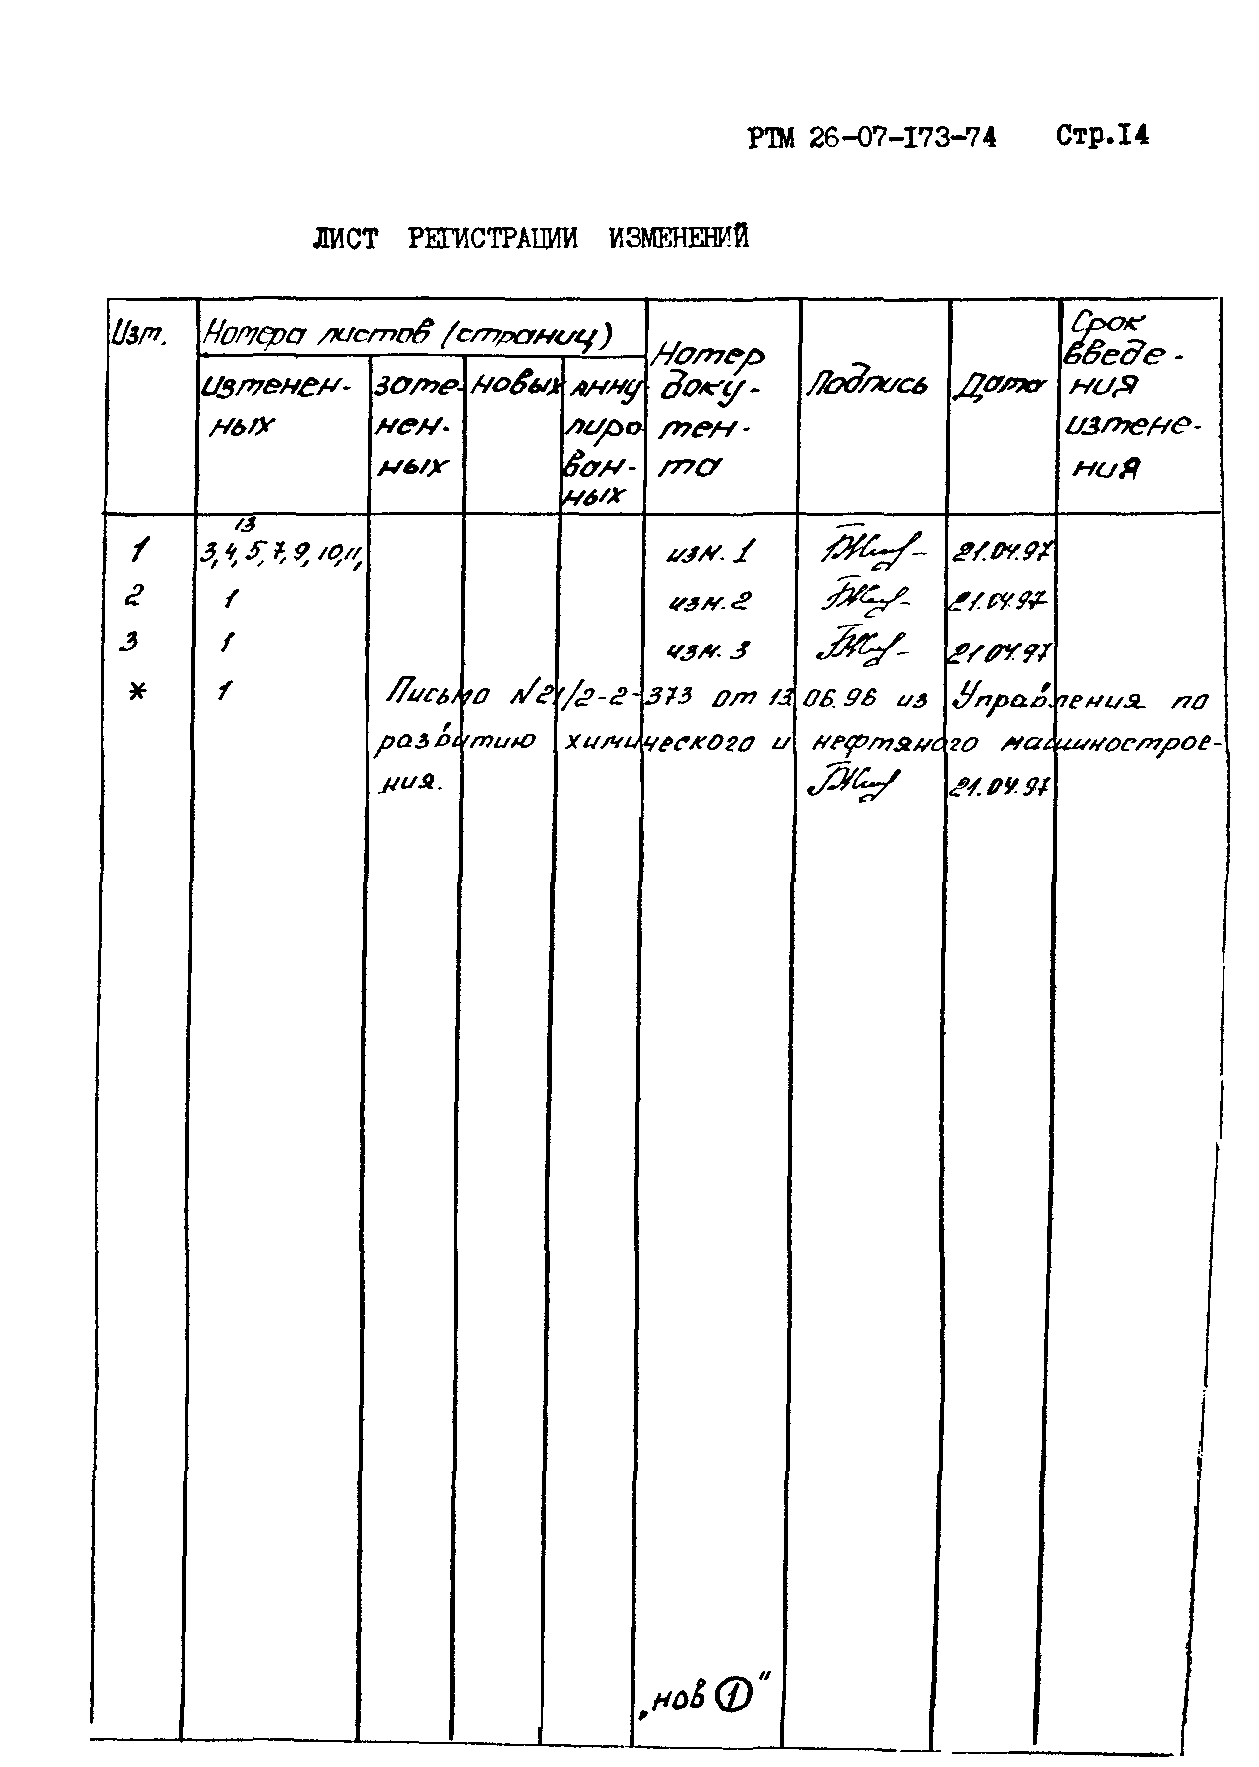 РТМ 26-07-173-74 Стр.14
ЛИСТ РЕГИСТРАЦИИ ИЗМЕНЕНИЙ
Изм. Номера листов (страниц) Номер доку-мен-та Подпись Дата Срок введе-ния измене-ния
изменен-ных заме-нен-ных новых анну лиро ван-ных
13
1 3,4,5,7,9,10,11, изм. 1 21.04.97
2 1 изм. 2 21.04.97
3 1 изм. 3 21.04.97
* 1 Письмо №21/2-2-373 от 13 06.96 из Управления по
развитию химического и нефтяного машинострое-
ния. 21.04.97
„нов ①“